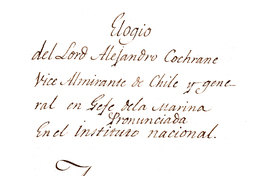 Elogio
del Lord Alejandro Cochrane
Vice Almirante de Chile y gene-
ral en Gefe dela Marina
Pronunciada
En el instituto nacional.